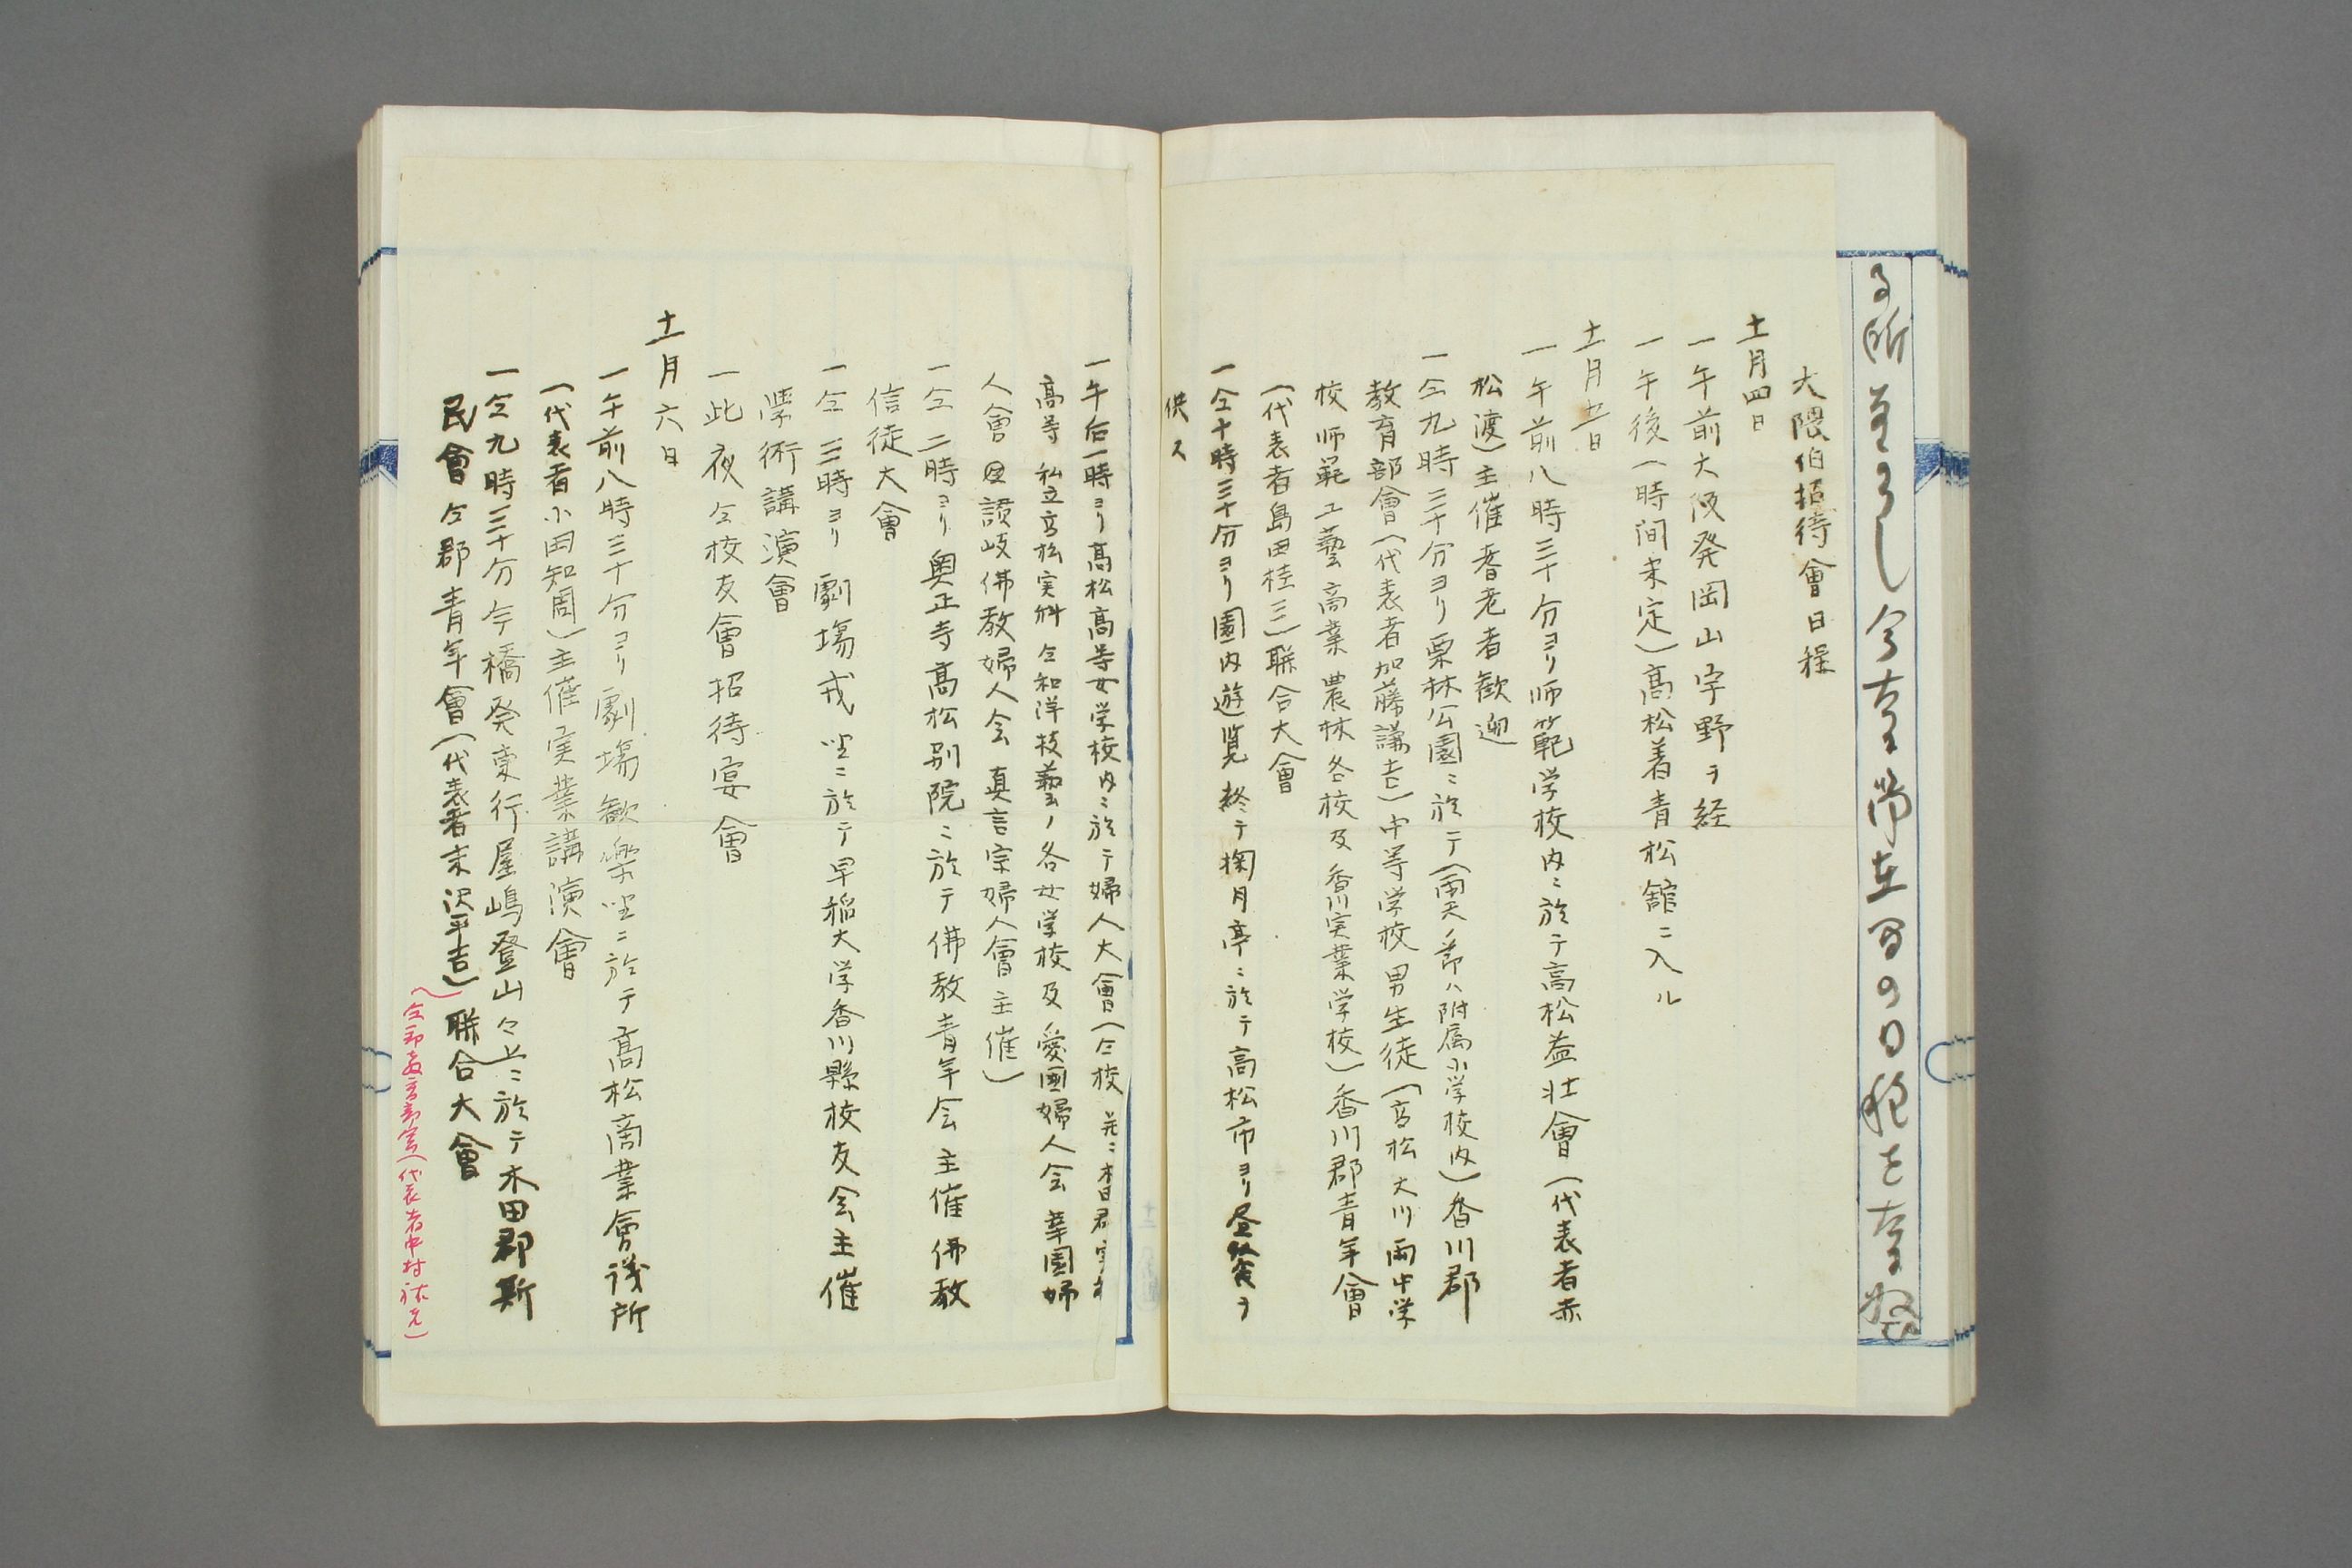 大隈伯招待會日程
十一月四日
一午前大阪発岡山宇野ヲ経
一午後(時间未定)高松着青松舘ニ入ル
十一月五日
一午前八時三十分ヨリ师範学校内ニ於テ高松益壮會(代表者赤
松渡)主催耆老者歓迎
一仝九時三十分ヨリ栗林公園ニ於テ(雨天ノ節ハ附属小学校内)香川郡
教育部會(代表者加藤講吉)中等学校男生徒(高松大川両中学
校师範工藝商業農林各校及香川実業学校)香川郡青年會
(代表者島田桂三)聯合大會
一仝十時三十分ヨリ園内遊覧終テ掬月亭ニ於テ高松市ヨリ昼餐ヲ
供ス
一午后一時ヨリ高松高等女学校内ニ於テ婦人大會(仝校
高等私立高松実科仝和洋技藝ノ各女学校及愛國婦人会奉國婦
人會讃岐佛教婦人会真言宗婦人會主催)
一仝二時ヨリ奥正寺高松别院ニ於テ佛教青年会主催佛教
信徒大會
一仝三時ヨリ劇場戎座ニ於テ早稲大学香川縣校友会主催
學術講演會
一此夜仝校友會招待宴會
十一月六日
一午前八時三十分ヨリ劇場歓樂座ニ於テ高松商業會議所
(代表者小田知周)主催実業講演會
一仝九時三十分今橋発東行屋嶋登山々上ニ於テ木田郡斯
民會仝郡青年會(代表者末沢平吉)聯合大會
(仝郡教育部會(代表者中村